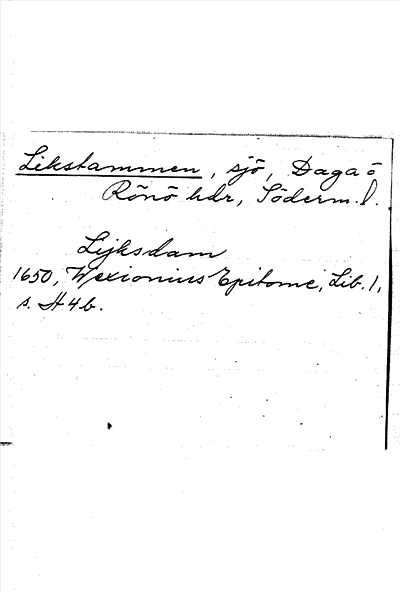 Likstammen, sjö, Daga o
Rönö hdr, Söderm. l.
Lijksdam
1650, Wexionius Epitome, Lib. 1,
s. H 4 b.